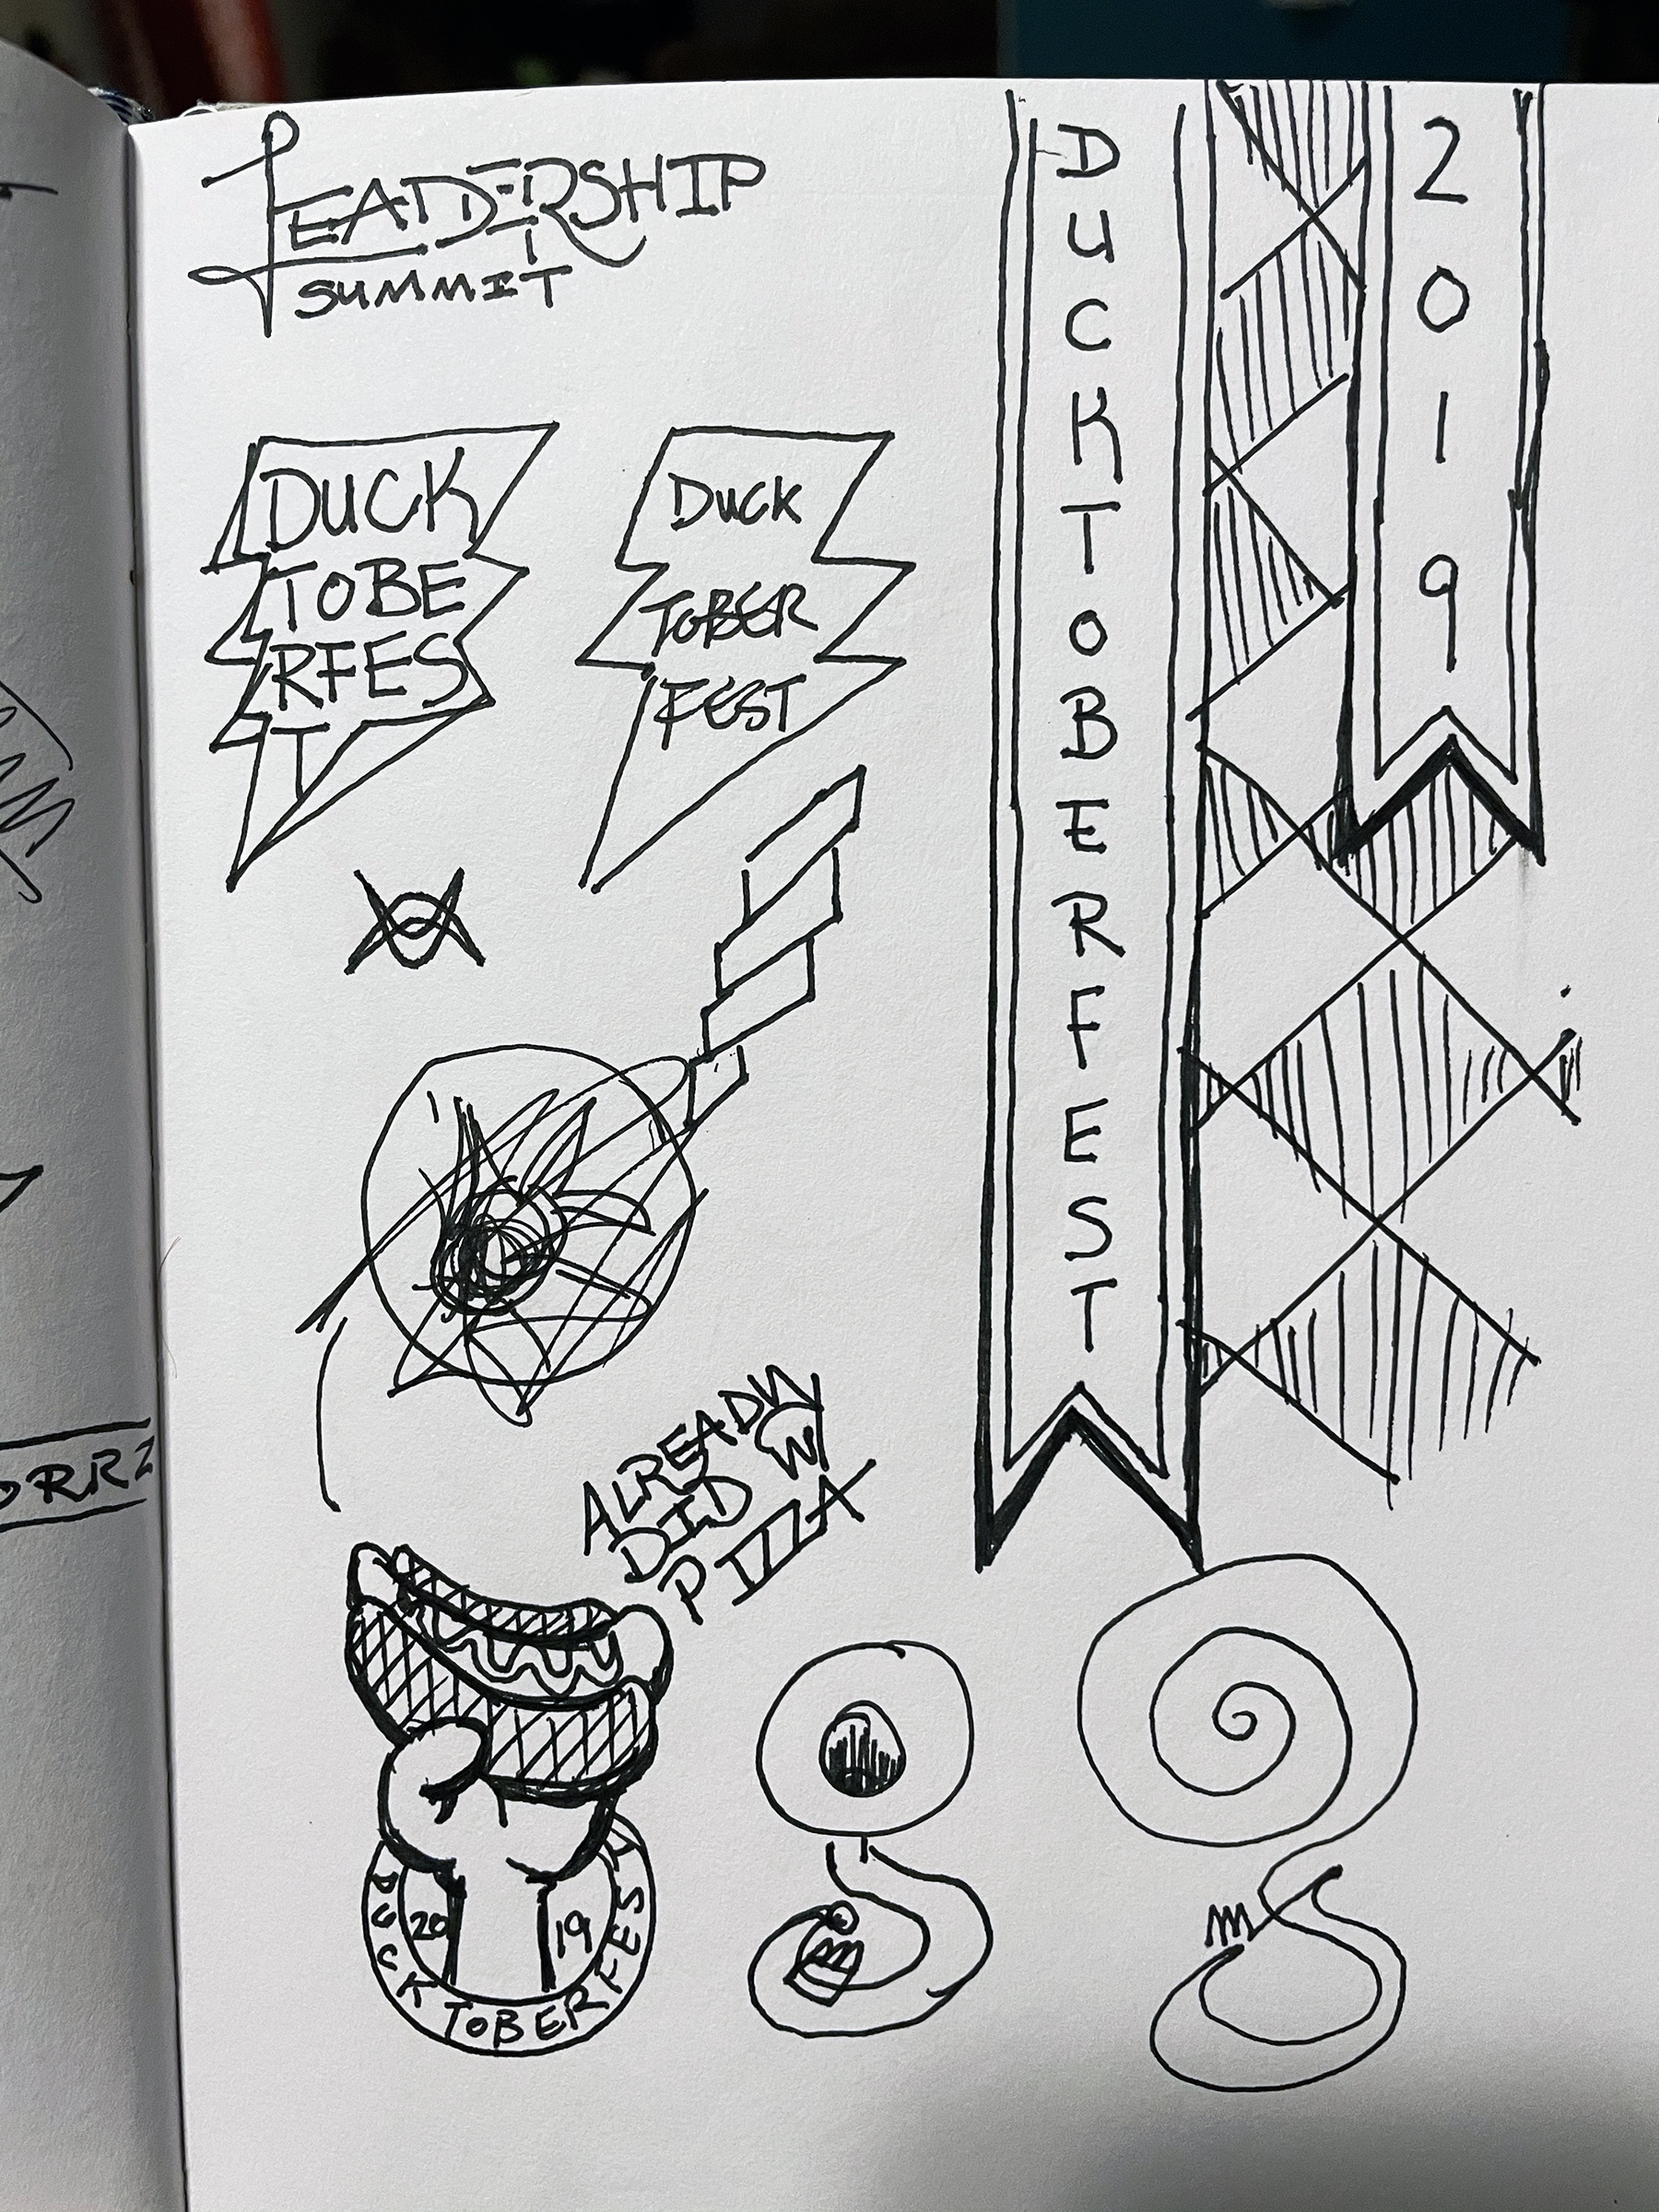 LEADERSHIP
SUMMIT
DUCK
TOBE
RFES
T
DUCK
TOBER
FEST
DUCKTOBERFEST
2019
ALREADY
DID W
PIZZA
20 19
DUCKTOBERFEST
ORRZ